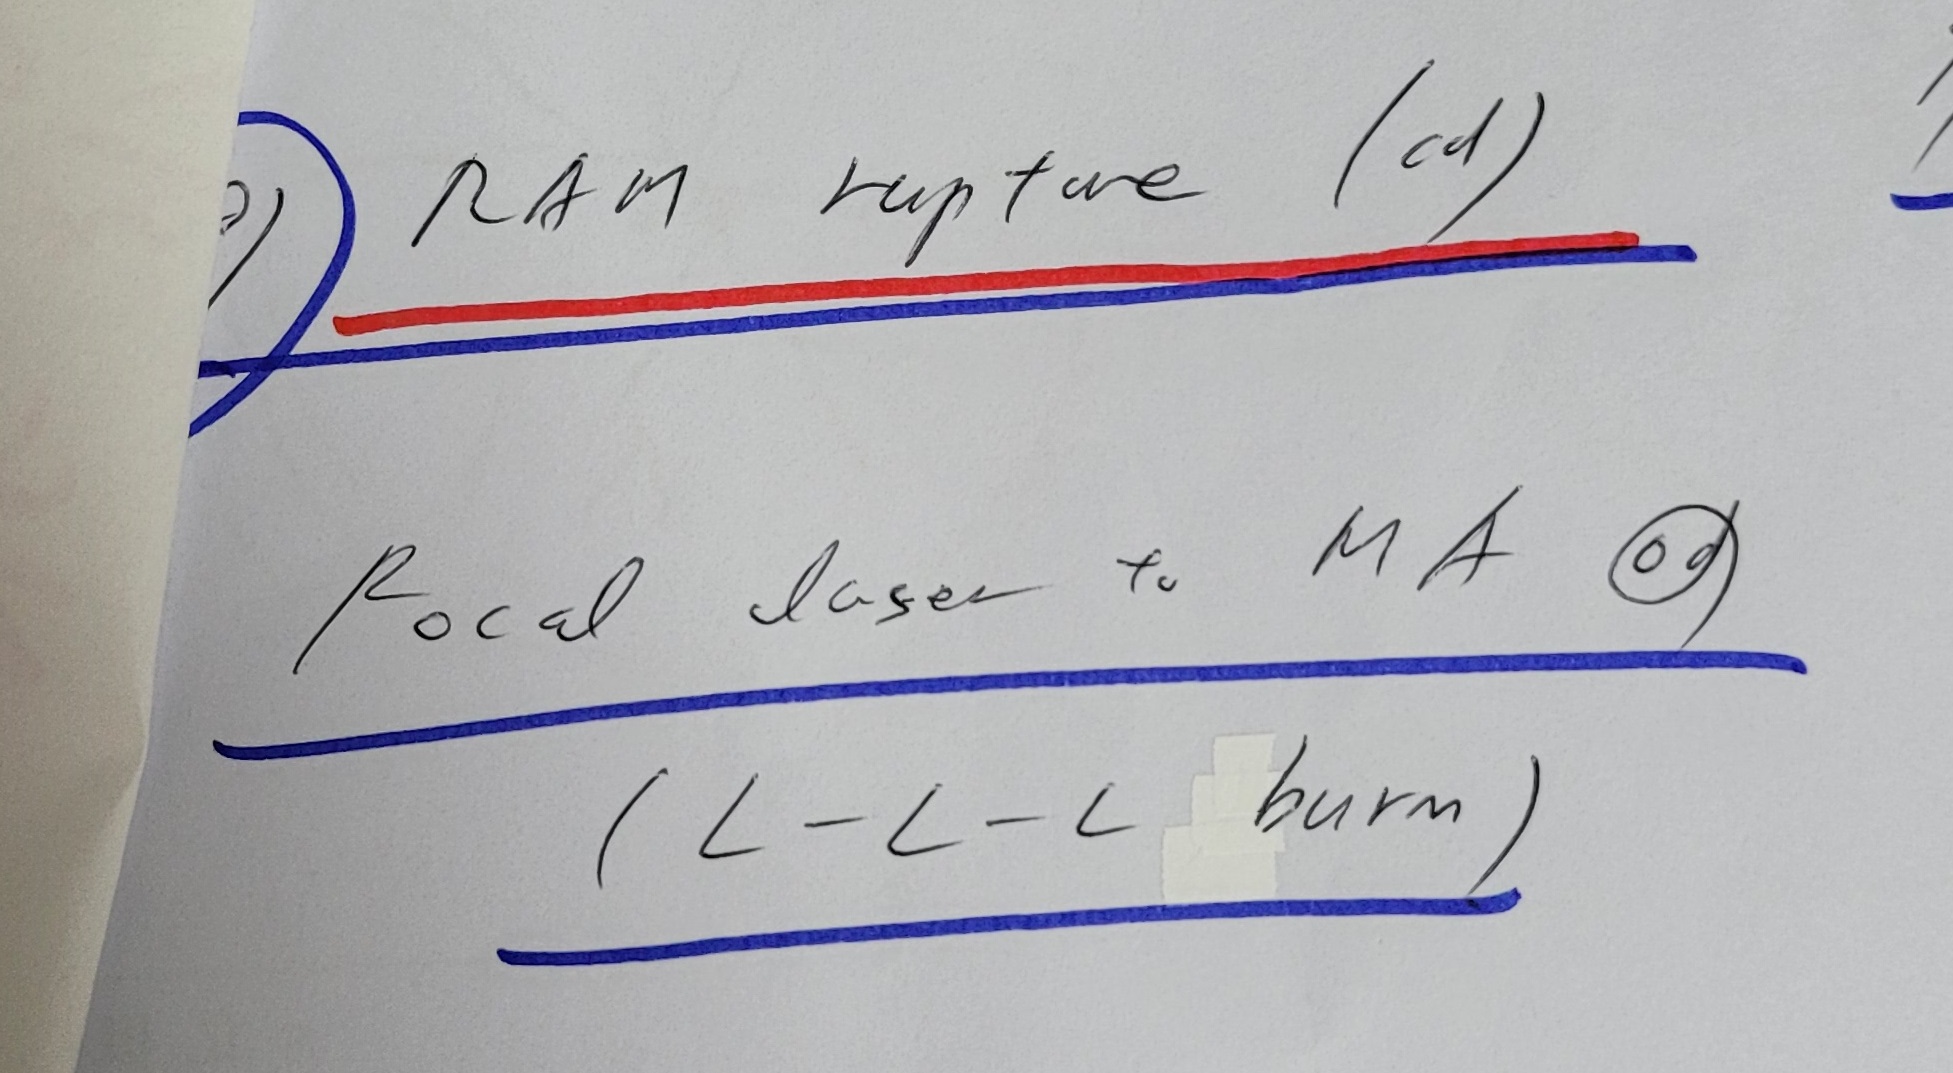 RAM rupture (od)
Focal laser to MA (od)
(L-L-L burn)